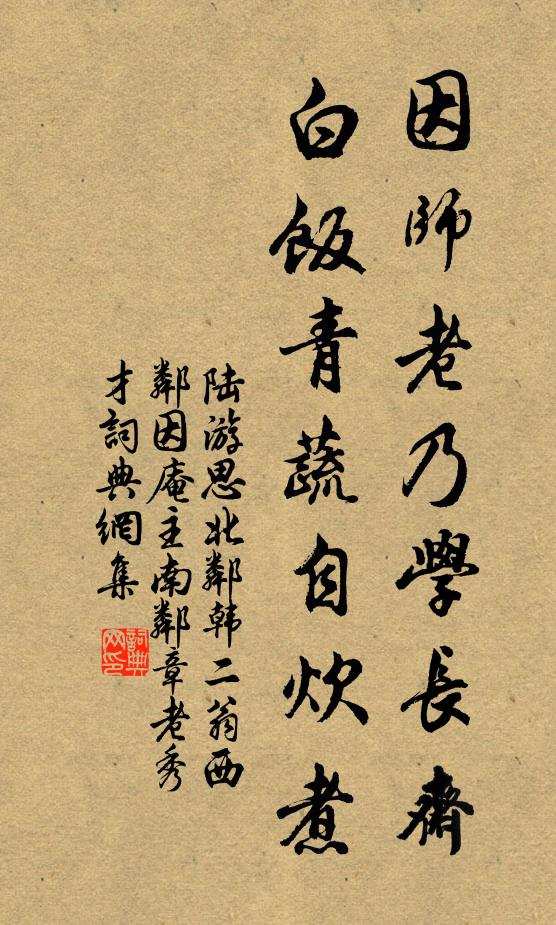 因師老乃學長齋
白飯青蔬自炊煮
陆游思北鄰韩二翁西
鄰因庵主南鄰章老秀
才詞典網集
詞典
网印